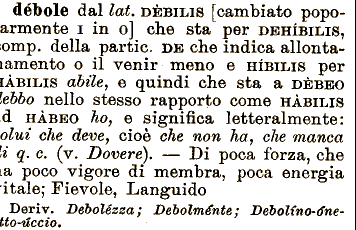 débole dal lat. DÈBILIS [cambiato popo-
armente I in O] che sta per DEHÍBILIS,
omp. della partic. DE che indica allonta-
namento o il venir meno e HÍBILIS per
HÀBILIS abile, e quindi che sta a DÈBEO
debbo nello stesso rapporto come HÀBILIS
ad HÀBEO ho, e significa letteralmente:
colui che deve, cioè che non ha, che manca
di q. c. (v. Dovere). — Di poca forza, che
ha poco vigore di membra, poca energia
vitale; Fievole, Languido
Deriv. Debolézza; Debolménte; Debolíno-óne-
tto-úccio.